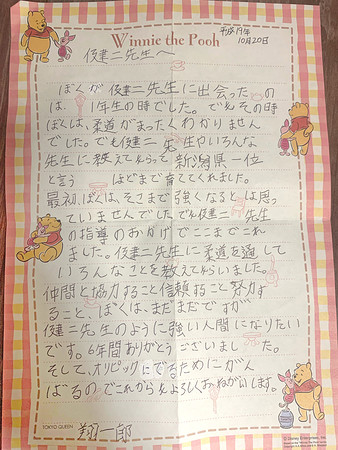 Winnie the Pooh
平成19年
10月20日
俊二先生へ
ぼくが俊二先生に出会ったの
は、1年生の時でした。でもその時
ぼくは、柔道がまったくわかりません
でした。でも俊二先生やいろんな
先生に教えてもらって新潟県一位
と言う ほどまで育ててくれました。
最初、ぼくは、そこまで強くなるとは思っ
ていませんでした。でも俊二先生
の指導のおかげでここまでこれ
ました。俊二先生に柔道を通して
いろんなことを教えてもらいました。
仲間と協力すること信頼すること努力す
ること、ぼくは、まだまだですが
俊二先生のように強い人間になりたい
です。6年間ありがとうございました。
そして、オリピックにでるためにがん
ばるのでこれからもよろしくおねがいします。
翔一郎
TOKYO QUEEN
© Disney Enterprises, Inc.